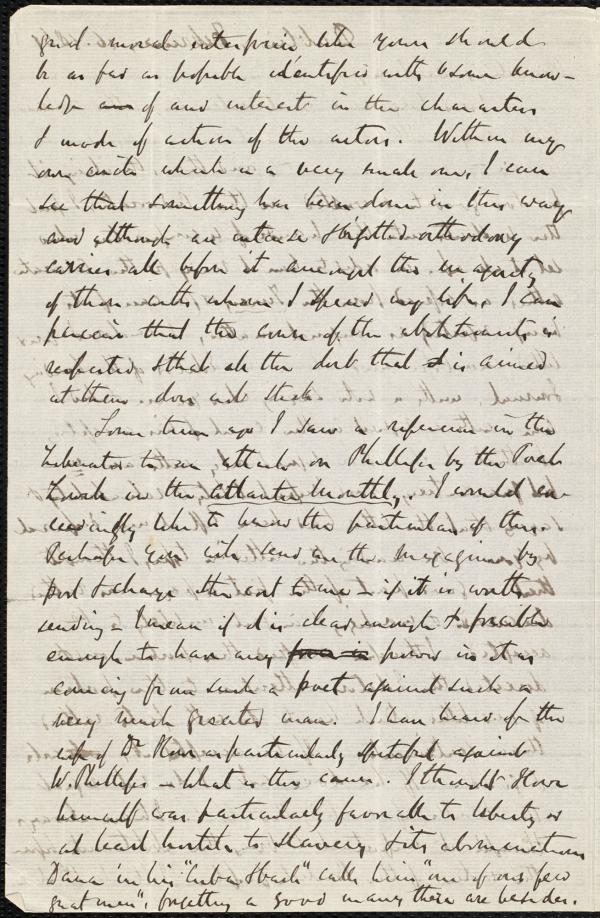 great moral enterprise like yours should
be as far as possible identified with & some know-
ledge of and interest in the characters
& mode of action of the actors. Within my
own circle which is a very small one, I can
see that something has been done in this way
and although an intense bigotted orthodoxy
carries all before it amongst the majority
of those with whom I spend my life, I can
perceive that the cause of the abolitionists is
respected & that all the dirt that is aimed
at them does not stick.
Some time ago I saw a reference in the
Liberator to an attack on Phillips by the Poet
in the Atlantic Monthly. I would ex-
ceedingly like to know the particulars of this.
Perhaps you will send me the magazine by
post & charge the cost to me - if it is worth
sending - I mean if it is clear enough & forcible
enough to have any power in it as
coming from such a poet against such a
very much greater man. I have heard of the
wife of Dr Howe as particularly spiteful against
W. Phillips - What is the cause. I thought Howe
himself was particularly favorable to liberty or
at least hostile to slavery & its abominations
Dana in his "Cuba & back" calls him "one of our few
great men", forgetting a good many there are besides.